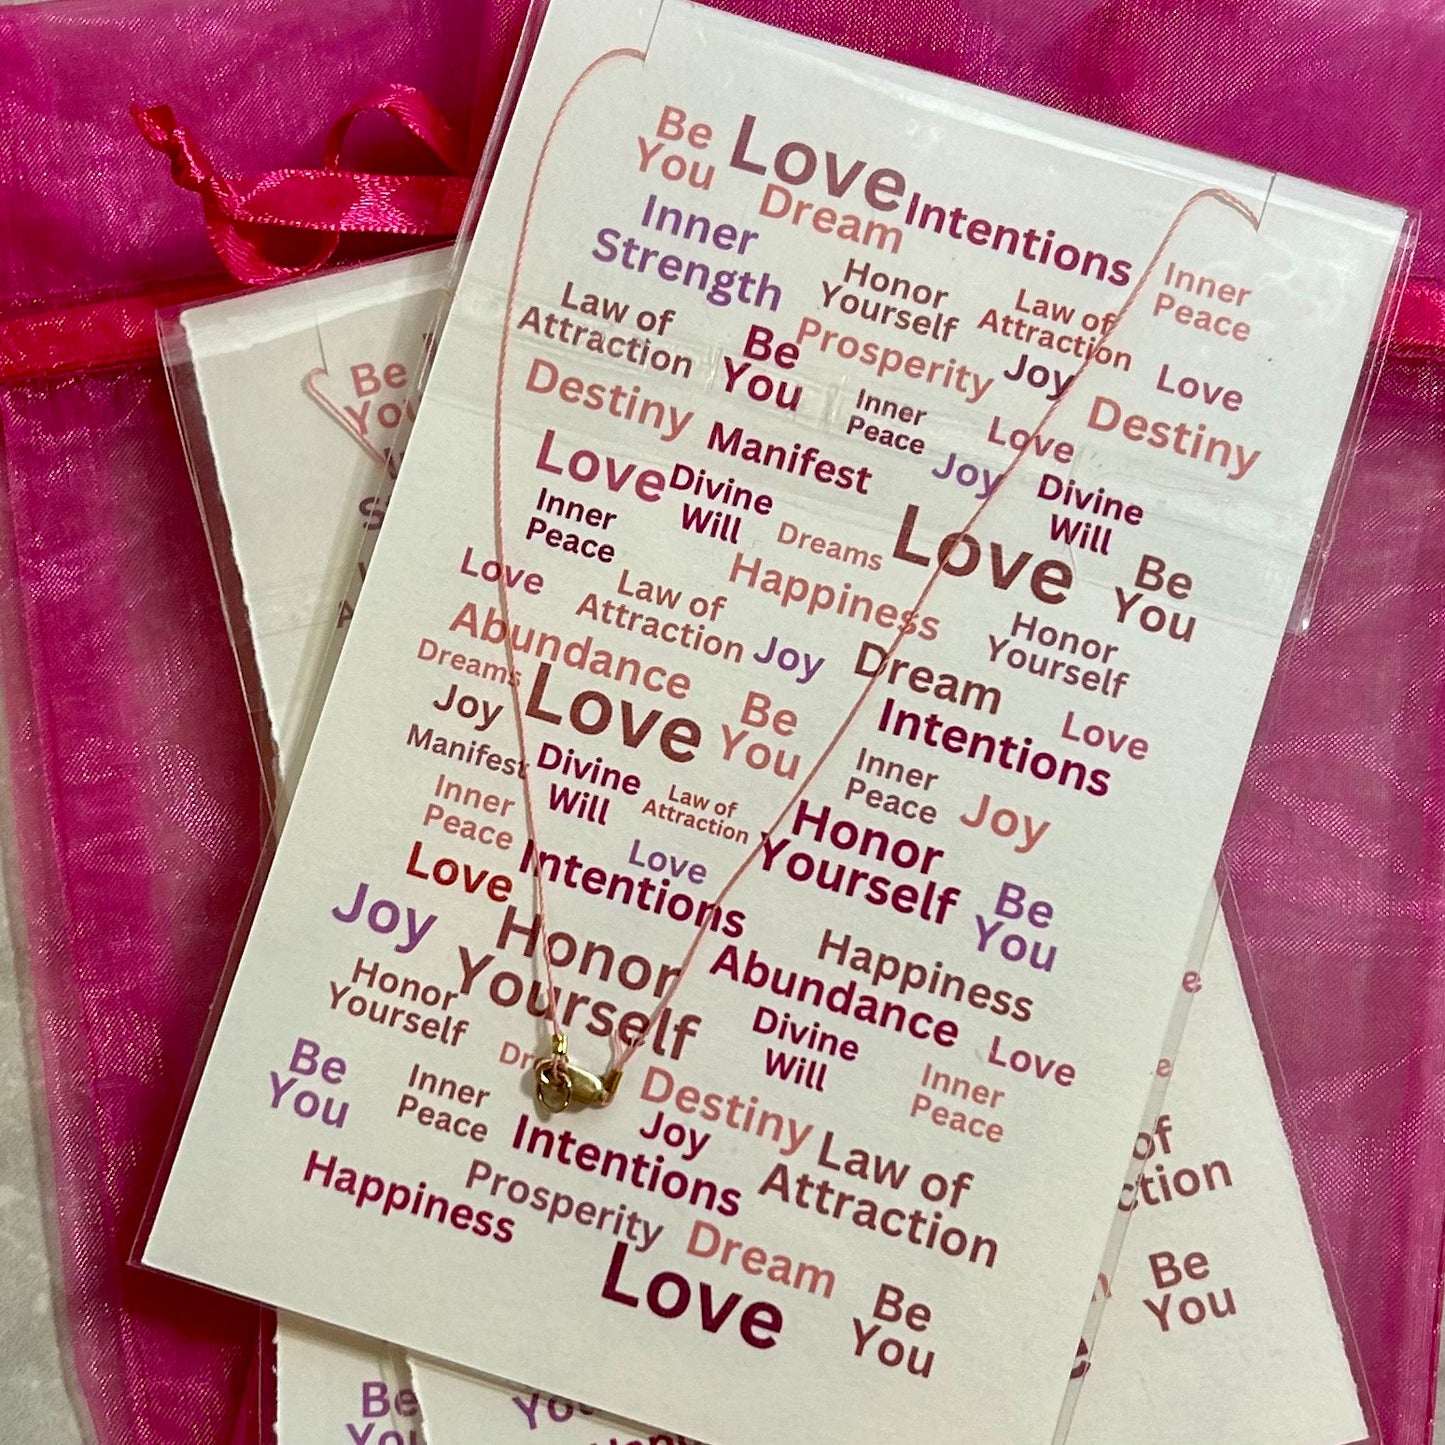 Be
You
Love
Dream
Intentions
Inner
Strength
Honor
Yourself
Law of
Attraction
Inner
Peace
Law of
Attraction
Be
You
Prosperity
Joy
Love
Destiny
Manifest
Inner
Peace
Love
Joy
Destiny
Love
Divine
Will
Dreams
Love
Divine
Will
Inner
Peace
Happiness
Be
You
Love
Law of
Attraction
Joy
Honor
Yourself
Abundance
Dream
Dreams
Love
Be
You
Intentions
Love
Joy
Manifest
Divine
Will
Law of
Attraction
Inner
Peace
Joy
Inner
Peace
Love
Honor
Yourself
Love
Intentions
Be
You
Joy
Honor
Yourself
Abundance
Happiness
Honor
Yourself
Divine
Will
Love
Be
You
Inner
Peace
Destiny
Inner
Peace
Intentions
Joy
Law of
Attraction
Happiness
Prosperity
Dream
Love
Be
You
Be
of
ction
Be
You
Be